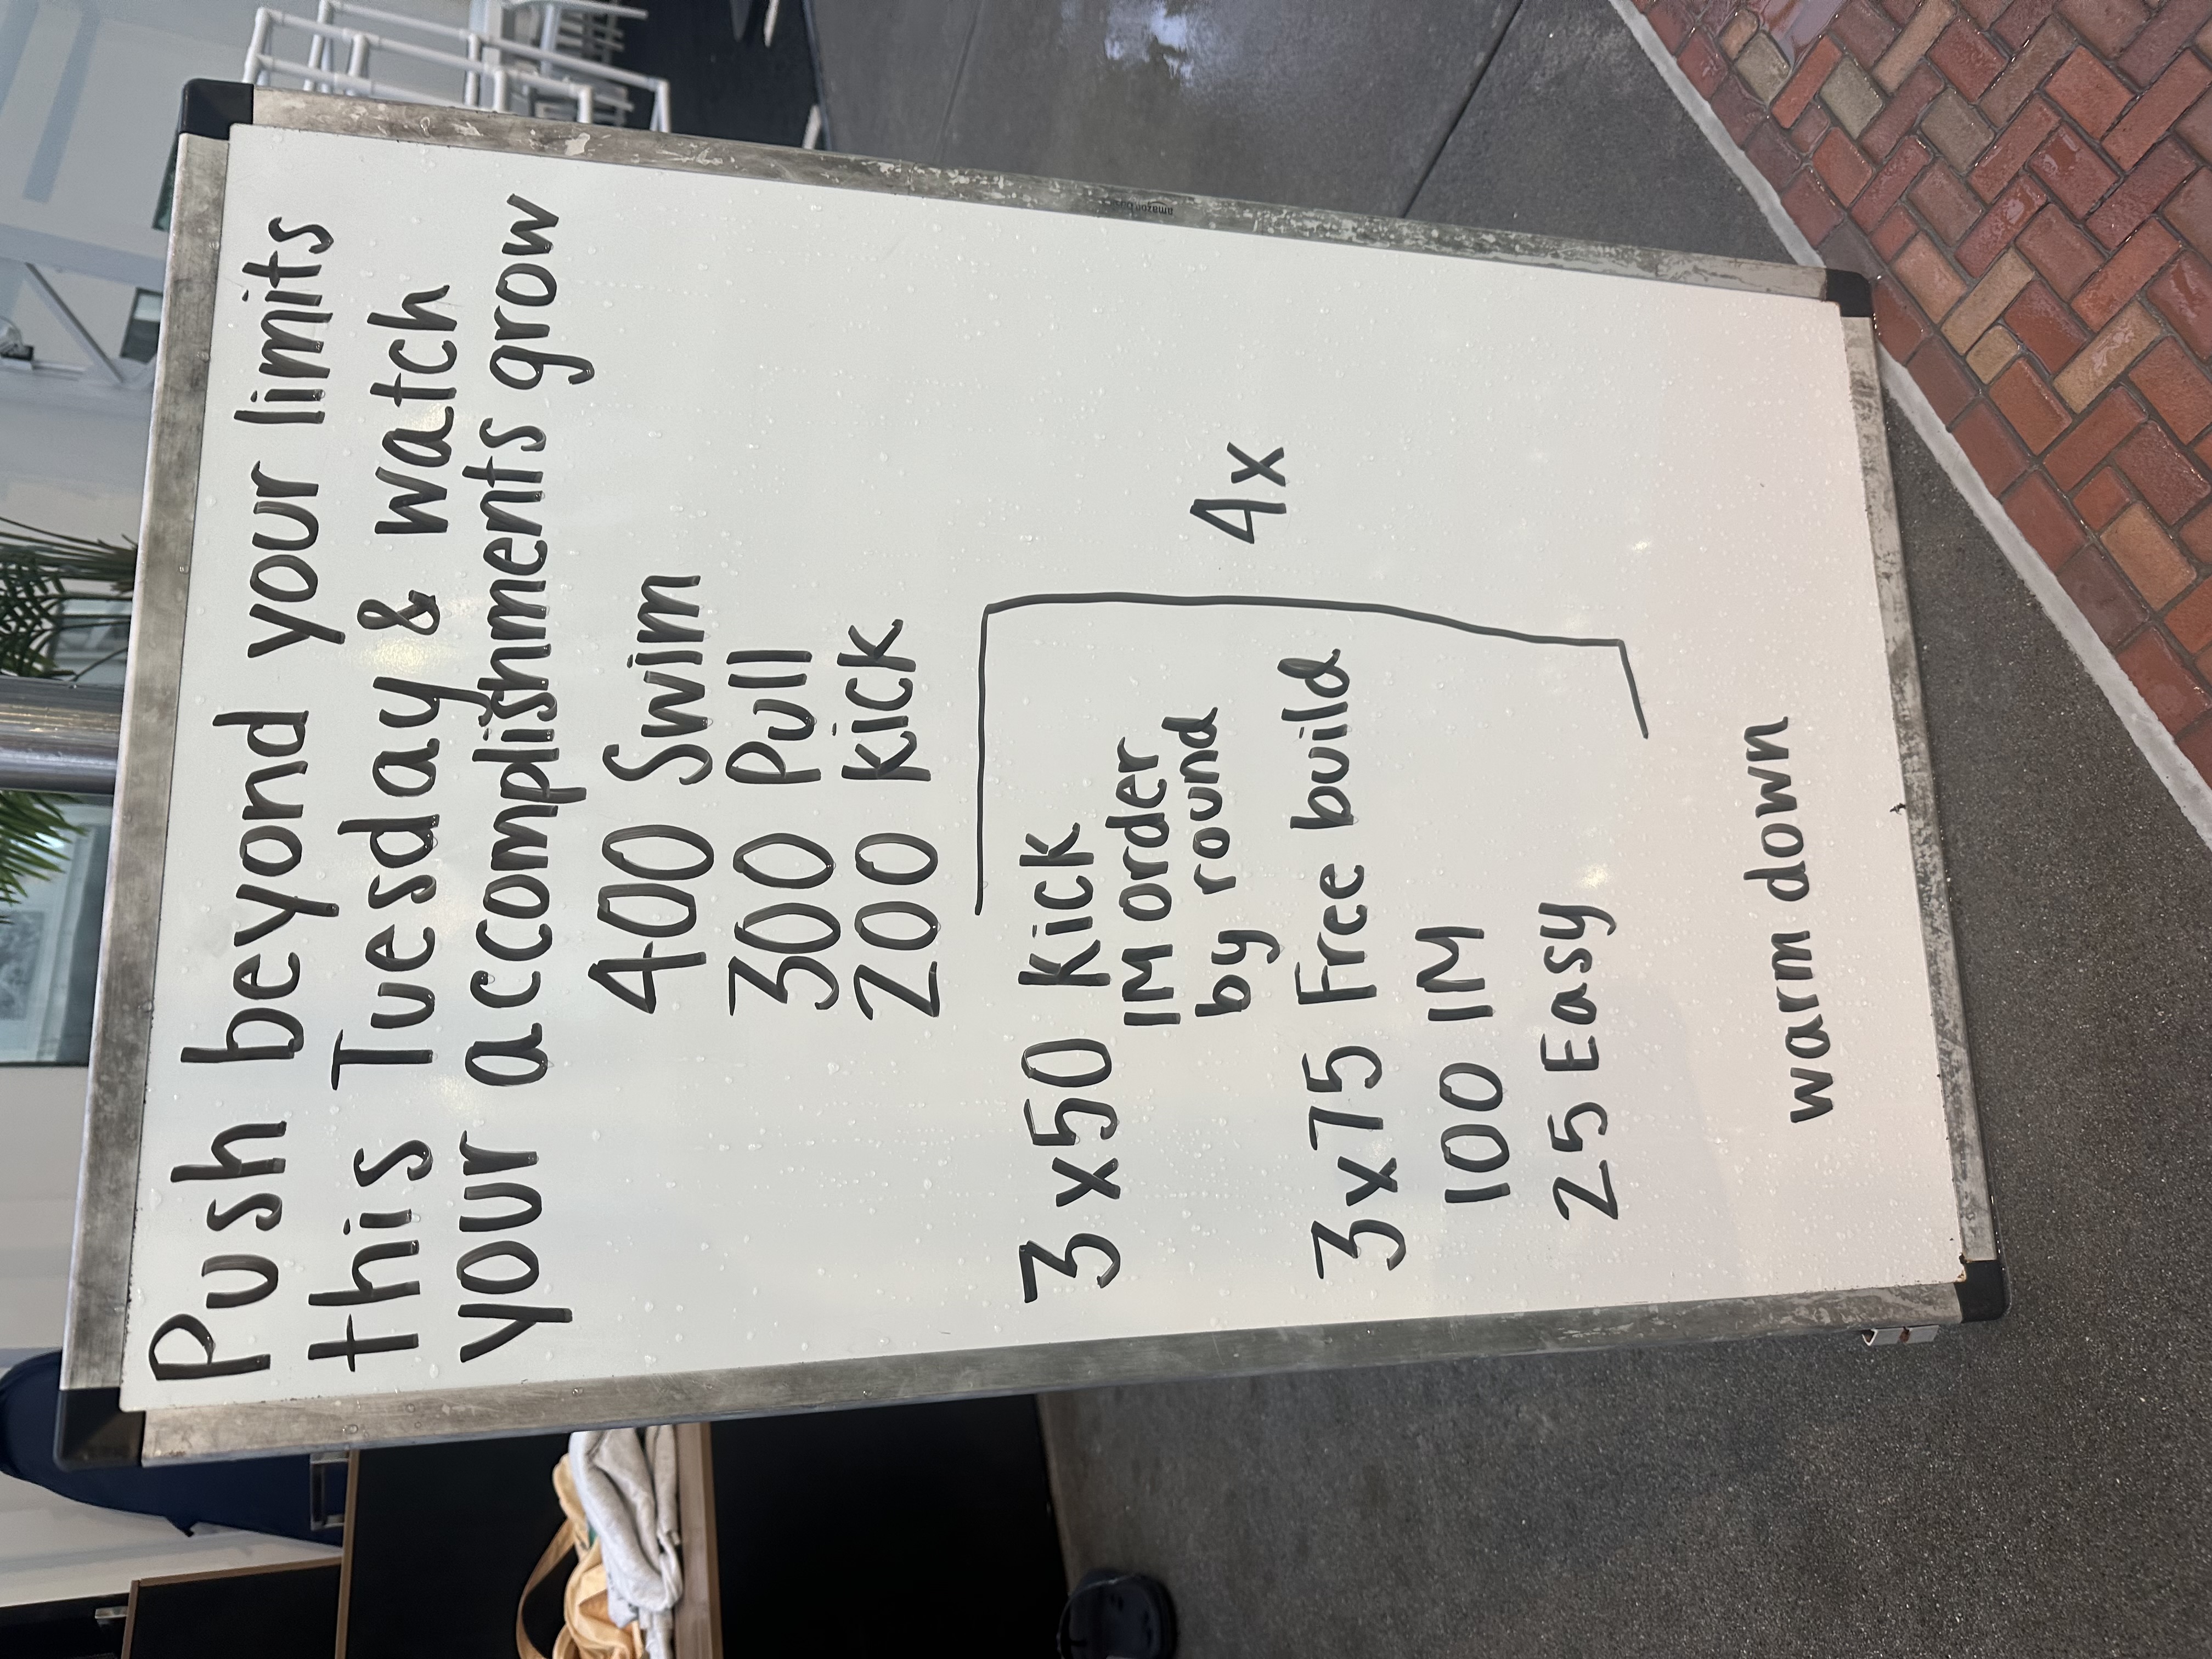 Push beyond your limits
this Tuesday & watch
your accomplishments grow
400 Swim
300 Pull
200 kick
3x50 kick
IM order
by round
3x75 Free build
100 IM
25 Easy
4x
warm down
amazon